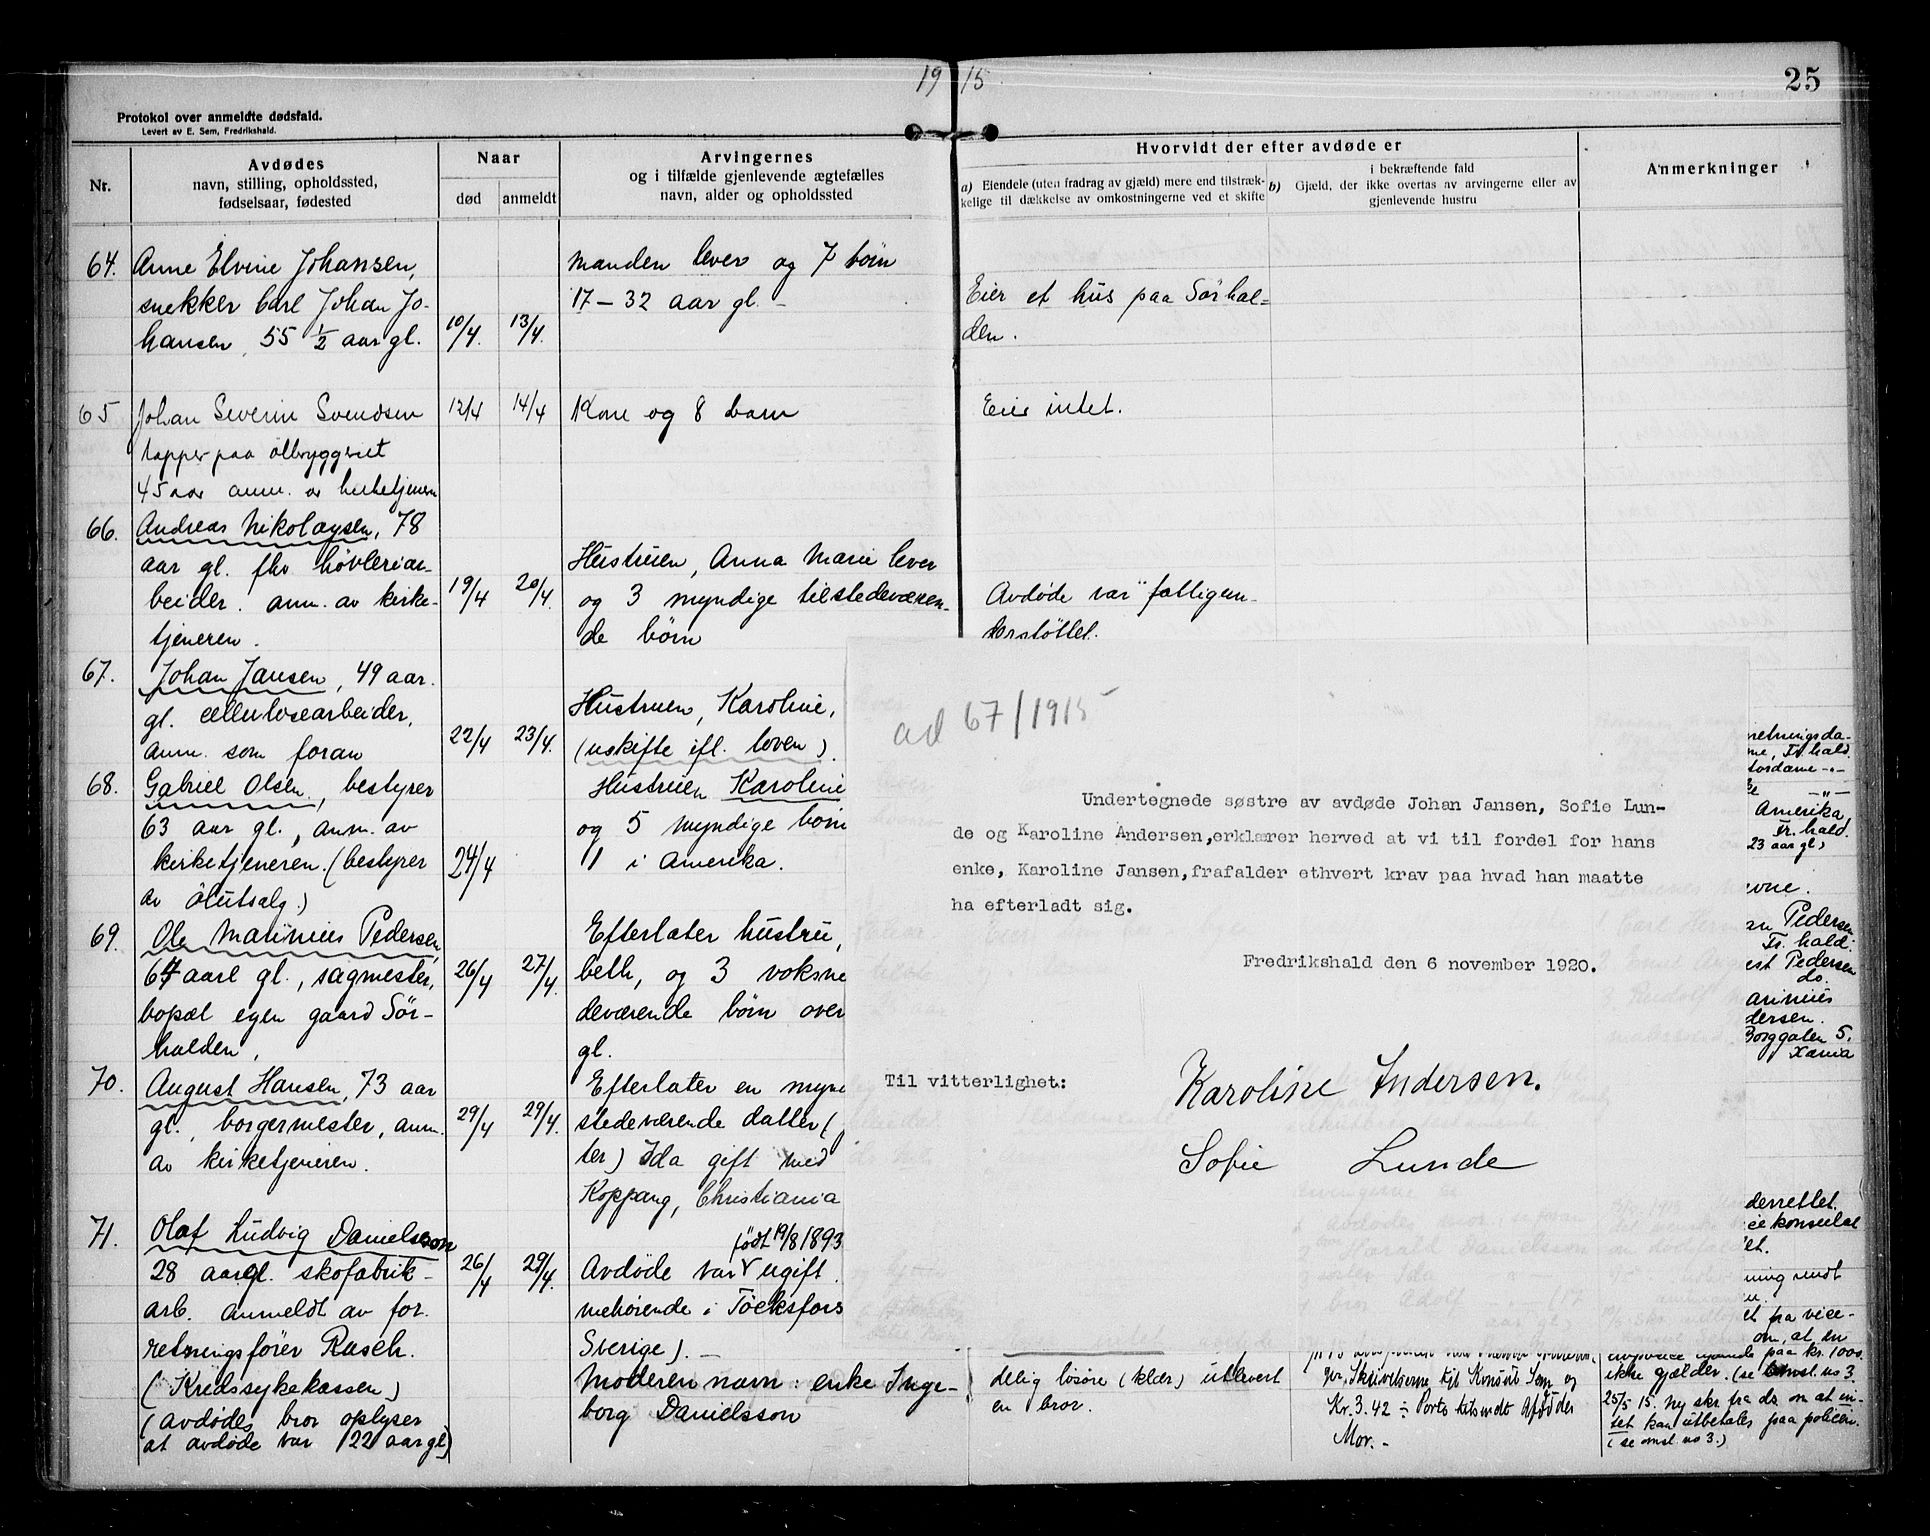 19 15
25
Protokol over anmeldte dødsfald.
Levert av E. Sem, Fredrikshald.
Nr.
Avdødes
navn, stilling, opholdssted,
fødselsaar, fødested
Naar
død
anmeldt
Arvingernes
og i tilfælde gjenlevende ægtefælles
navn, alder og opholdssted
Hvorvidt der efter avdøde er
a) Eiendele (uten fradrag av gjæld) mere end tilstræk-
kelige til dækkelse av omkostningerne ved et skifte
i bekræftende fald
b) Gjæld, der ikke overtas av arvingerne eller av
gjenlevende hustru
Anmerkninger
64. Anne Elvine Johansen,
snekker Carl Johan Jo-
hansen, 55 1/2 aar gl.
10/4. 13/4.
Manden lever og 7 børn
17 - 32 aar gl. -
Eier et hus paa Sørhal-
den.
65 Johan Severin Svendsen
tapper paa ølbryggeriet
45 aar anm. av kirketjeneren
12/4 14/4
Kone og 8 barn
Eier intet.
66. Andreas Nikolaysen, 78
aar gl. fhv høvleriar-
beider. anm. av kirke-
tjeneren.
19/4 20/4.
Hustruen, Anna Marie lever
og 3 myndige tilstedeværen-
de børn
Avdøde var fattigun-
derstøttet.
67. Johan Jansen, 49 aar.
gl. cellulosearbeider,
anm. som foran
22/4 23/4.
Hustruen, Karoline,
(uskifte ifl. loven).
68. Gabriel Olsen, bestyrer
63 aar gl., anm. av
kirketjeneren. (bestyrer
av ølutsalg.)
24/4
Hustruen Karoline
og 5 myndige børn
1 i Amerika.
69. Ole Marinius Pedersen,
67 aarl gl., sagmester,
bopæl egen gaard Sør-
halden,
26/4 27/4.
Efterlater hustru,
beth, og 3 voksne
deværende børn over
gl.
70. August Hansen, 73 aar
gl., borgermester, anm.
av kirketjeneren.
29/4 29/4.
Efterlater en myn
stedeværende datter (
ter) Ida gift med
Koppang, Christiania
71. Olaf Ludvig Danielsson
28 aar gl. skofabrik-
arb. anmeldt av for.
retningsfører Rasch.
(Kredssykekassen)
(avdødes bror oplyser
at avdøde var 22 aar gl)
26/4 29/4.
født 19/8 1893
Avdøde var ugift.
mehørende i Töcksfors
Sverige). -
Moderen navn: enke Inge-
borg Danielsson
delig løsøre (klær) utlevert
en bror.
gr, Skrivelserne til Konsul Sem og
Kr. 3.42 ÷ Porto tilsendt Afdødes
Mor. -
ad 67/1915
Undertegnede søstre av avdøde Johan Jansen, Sofie Lun-
de og Karoline Andersen,erklærer herved at vi til fordel for hans
enke, Karoline Jansen,frafalder ethvert krav paa hvad han maatte
ha efterladt sig.
Fredrikshald den 6 november 1920.
Til vitterlighet:
Karoline Andersen.
Sofie Lunde
retningsda-
me, Fr.hald
tordame -"-
-"-
Amerika
Fr. hald.
23 aar gl)
evne.
en Pedersen
Fr. hald.
est Pedersen
do.
arinius
dersen.
Borggaten 5.
Xania
derrettet.
ice konsulat
et.
ning sendt
et fra vice-
om, at en
paa kr. 1000.
ikke gjælder. (se omsl. no 3.
25/5 15. Ny skr fra do om at in-
tet kan utbetales paa policen.
(se omsl. no 3.)